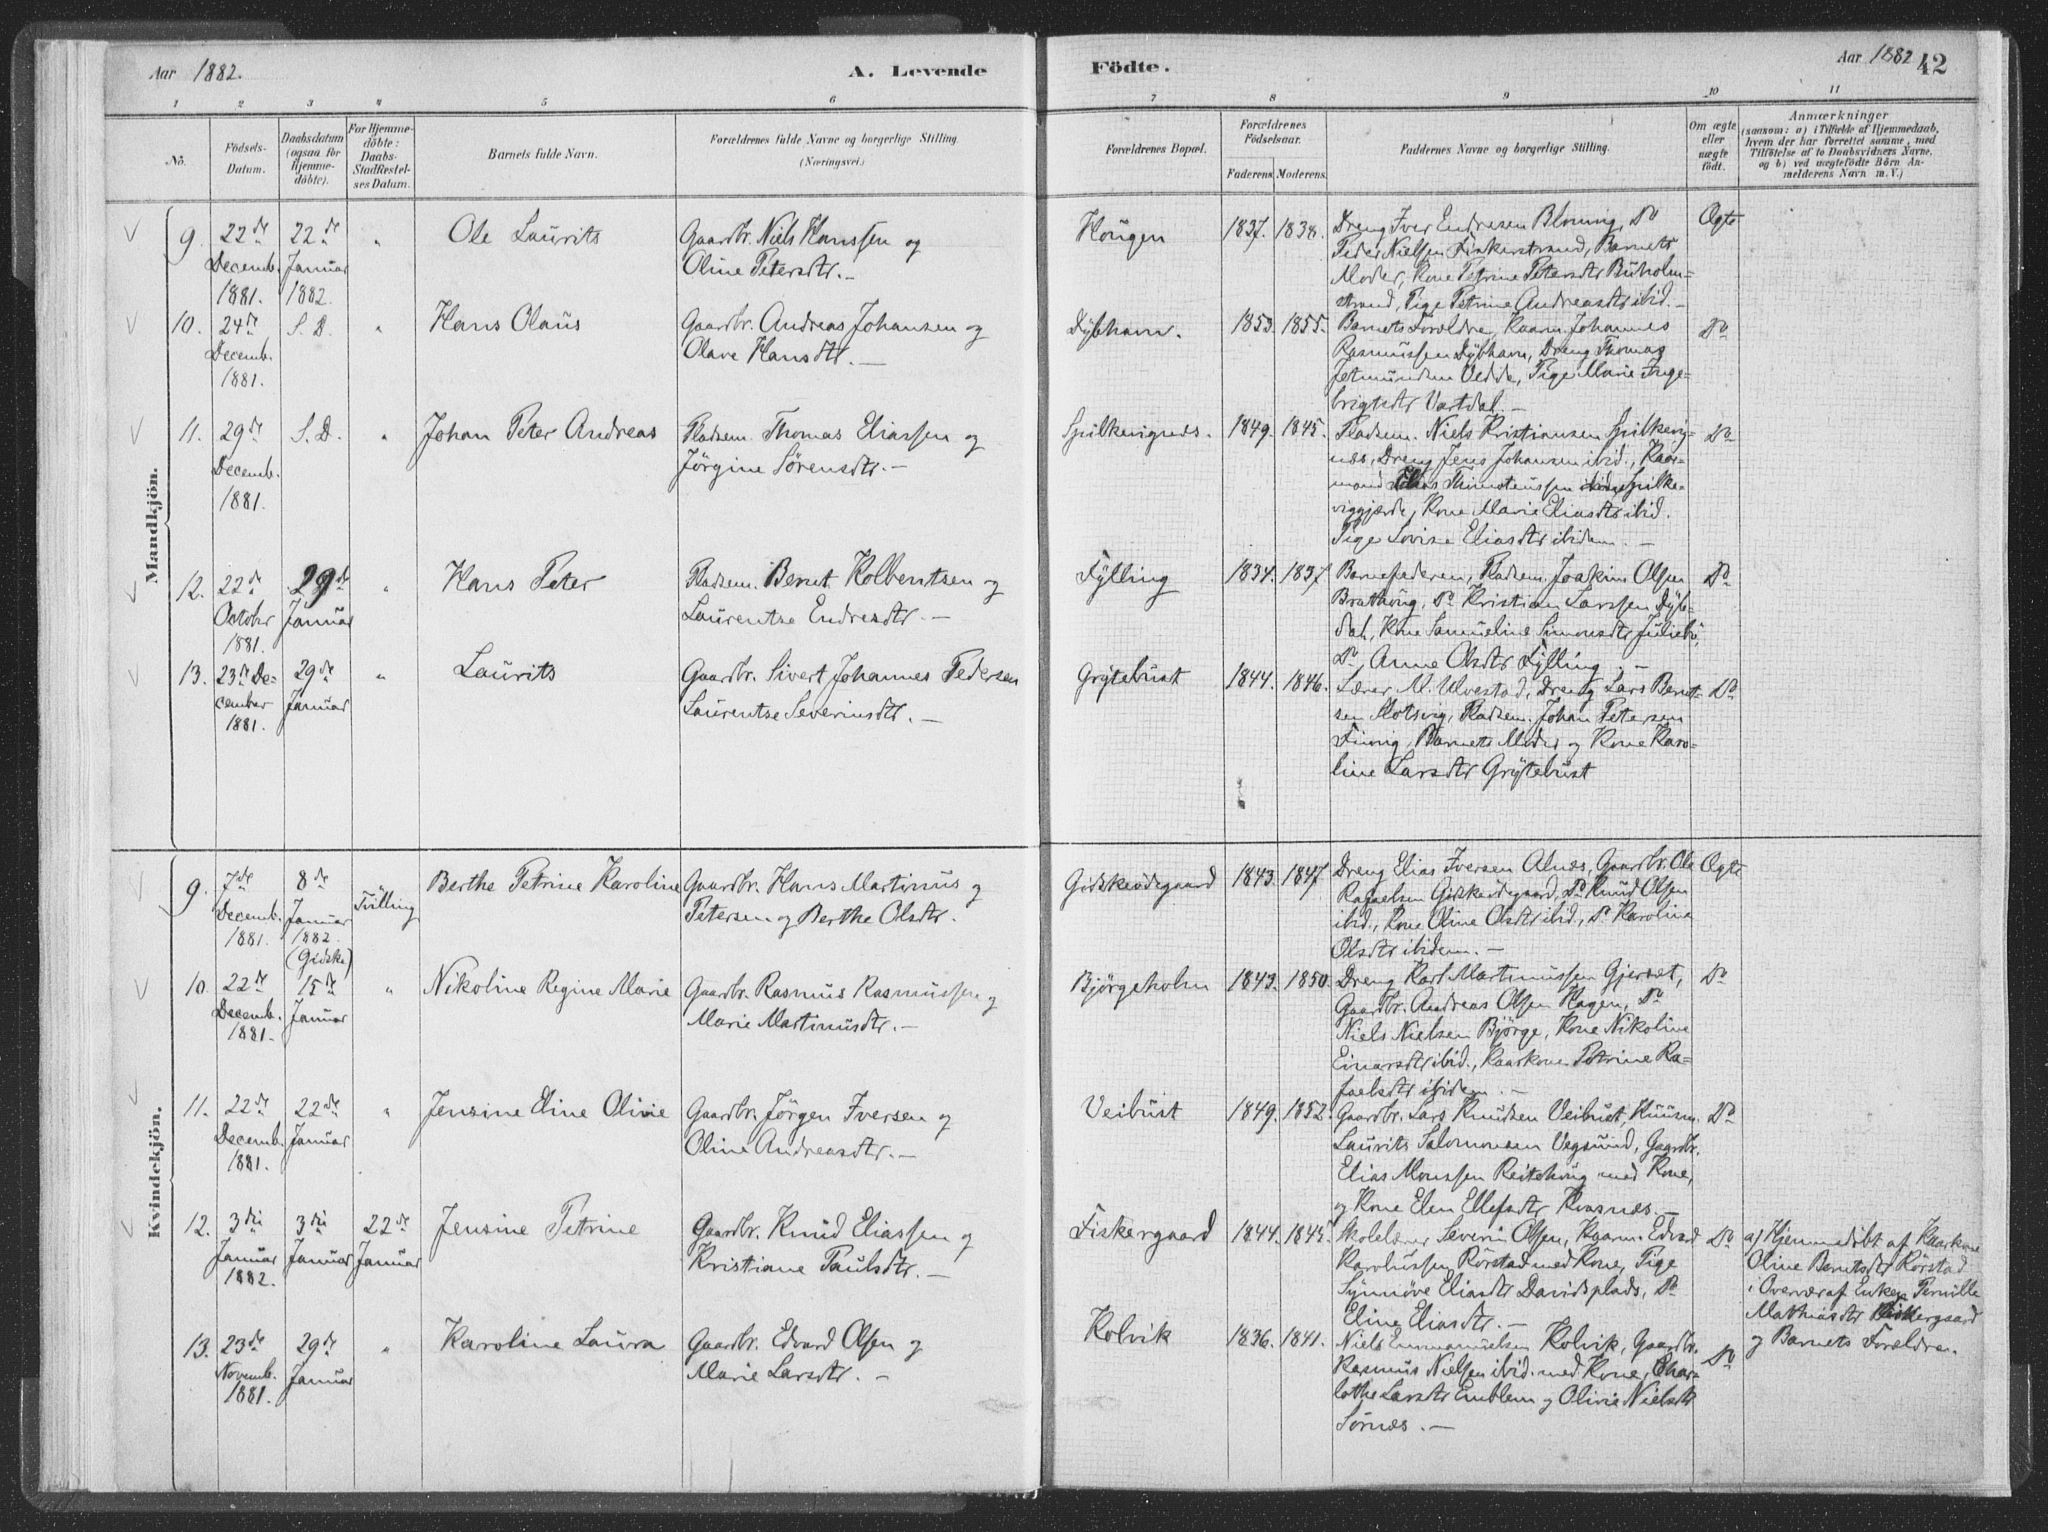 Aar 1882.
A. Levende
Födte.
Aar 1882
42
1 2 3 4 5 6 7 8 9 10 11
No.
Födsels-Datum.
Daabsdatum (ogsaa for Hjemme-döbte).
For Hjemme-döbte: Daabs-Stadfæstel-ses Datum.
Barnets fulde Navn.
Forældrenes fulde Navne og borgerlige Stilling. (Næringsvei.)
Forældrenes Bopæl.
Forældrenes Födselsaar.
Faderens.
Moderens.
Faddernes Navne og borgerlige Stilling.
Om ægte eller uægte födt.
Anmærkninger
(saasom: a) i Tilfælde af Hjemmedaab, hvem der har forrettet samme, med Tilföielse af to Daabsvidners Navne, og b) ved uægtefödte Börn An-melderens Navn m. V.)
Mandkjön.
9. 22de Decemb. 1881. 22de Januar 1882. "
Ole Laurits
Gaardbr. Niels Hanssen og
Oline Petersdtr. —
Hougen
1837. 1838.
Dreng Iver Endresen Blomvig, Do
Peder Nielsen Fiskerstrand, Barnets
Moder, Kone Petrine Petersdtr Buholm-
strand, Pige Petrine Andreasdtr ibid. —
Ægte
10. 24de Decemb. 1881. S. D. "
Hans Olaus
Gaardbr. Andreas Johansen og
Olave Hansdtr. —
Dybhavn.
1853. 1855.
Barnets Forældre, Kaarm. Johannes
Rasmussen Dybhavn, Dreng Thomas
Jetmundsen Vedde, Pige Marie Inge-
brigtsdtr Vartdal. —
Do
11. 29de Decemb. 1881. S. D. "
Johan Peter Andreas
Pladsem. Thomas Eliassen og
Jörgine Sörensdtr. —
Spilkevignes.
1849. 1845.
Pladsem. Niels Kristiansen Spilkevig-
nes, Dreng Jens Johansen ibid., Kaar-
mand Elias Thimoteussen Spilke-
viggjærde, Kone Marie Eliasdtr ibid.
Pige Lovise Eliasdtr ibidem. —
Do
12. 22de October 1881. 29de Januar "
Hans Peter
Pladsem. Bernt Kolbentsen og
Laurentse Endresdtr. —
Fylling
1834. 1837.
Barnefaderen, Pladsem. Joakim Olsen
Bratthoug, Do Kristian Larssen Dyb-
dal, Kone Samueline Simonsdtr Juliebö,
Do Anne Olsdtr Fylling. —
Do
13. 23de De-
cember 1881. 29de Januar "
Laurits
Gaardbr. Sivert Johannes Pedersen
Laurentse Severinsdtr. —
Grytebust
1844. 1846.
Lærer M. Ulvestad, Dreng Lars Bernt-
sen Slotsvig, Pladsem. Johan Petersen
Barnets Moder og Kone Karo-
line Larsdtr Grytebust
Do
Kvindekjön.
9. 7de Decemb. 1881. 8de Januar 1882. (Gidske) Tvilling
Berthe Petrine Karoline
Gaardbr. Hans Martinus
Petersen og Berthe Olsdtr.
Gidskeödegaard
1843. 1847
Dreng Elias Iversen Alnæs, Gaardbr. Ole
Rafaelsen Gidskeödegaard, Do Knud Olsen
ibid., Kone Oline Olsdtr ibid., Do Karoline
Olsdtr ibidem. —
Ægte
10. 22de Decemb. 1881. 15de Januar "
Nikoline Regine Marie
Gaardbr. Rasmus Rasmussen og
Marie Martinusdtr. —
Björgeholm
1843. 1850.
Dreng Karl Martinussen Gjerset,
Gaardbr. Andreas Olsen Hagen, Do
Niels Nielsen Björge, Kone Nikoline
Einarsdtr ibid., Kaarkone Petrine Ra-
faelsdtr ibidem. —
Do
11. 22de Decemb. 1881. 22de Januar "
Jensine Eline Olivie
Gaardbr. Jörgen Iversen og
Oline Andreasdtr. —
Veibust
1849. 1852.
Gaardbr. Lars Knudsen Veibust, Huusm.
Laurits Salomonsen Vegsund, Gaardbr.
Elias Monssen Reitehoug med Kone,
og Kone Elen Ellefsdtr Kvasnes. —
Do
12. 3die Januar 1882. 3die Januar 22de Januar
Jensine Petrine
Gaardbr. Knud Eliassen og
Kristiane Paulsdtr. —
Fiskergaard
1844. 1845.
Skolelærer Severin Olsen, Kaarm. Edvard
Karolussen Rörstad med Kone, Pige
Synnöve Eliasdtr Davidsplads, Do
Eline Eliasdtr. —
Do
a) Hjemmedöbt af Kaarkone
Oline Berntsdtr Rörstad
i Overvær af Enken Pernille
Mathiasdtr Fiskergaard
og Barnets Forældre.
13. 23de Novemb. 1881. 29de Januar "
Karoline Laura
Gaardbr. Edvard Olsen og
Marie Larsdtr. —
Kolvik
1836. 1841.
Niels Emmanuelsen Kolvik, Gaardbr.
Rasmus Nielsen ibid. med Kone, Char-
lothe Larsdtr Emblem og Olivie Nielsdtr
Sörnæs. —
Do